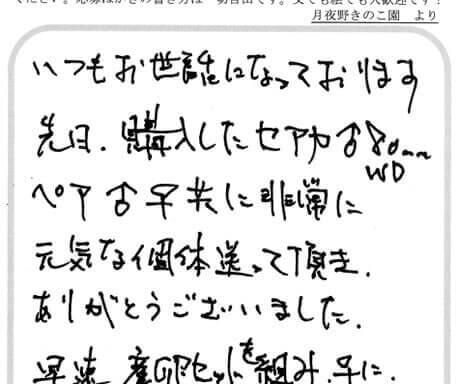 ください。応募はがきの書き方は一切自由です。文でも絵でも大歓迎です！
月夜野きのこ園 より
いつもお世話になっております
先日、購入したセアカ♂80mm
WD
ペア♂♀共に非常に
元気な個体送って頂き、
ありがとうございました。
早速、産卵セットを組み、♀に、